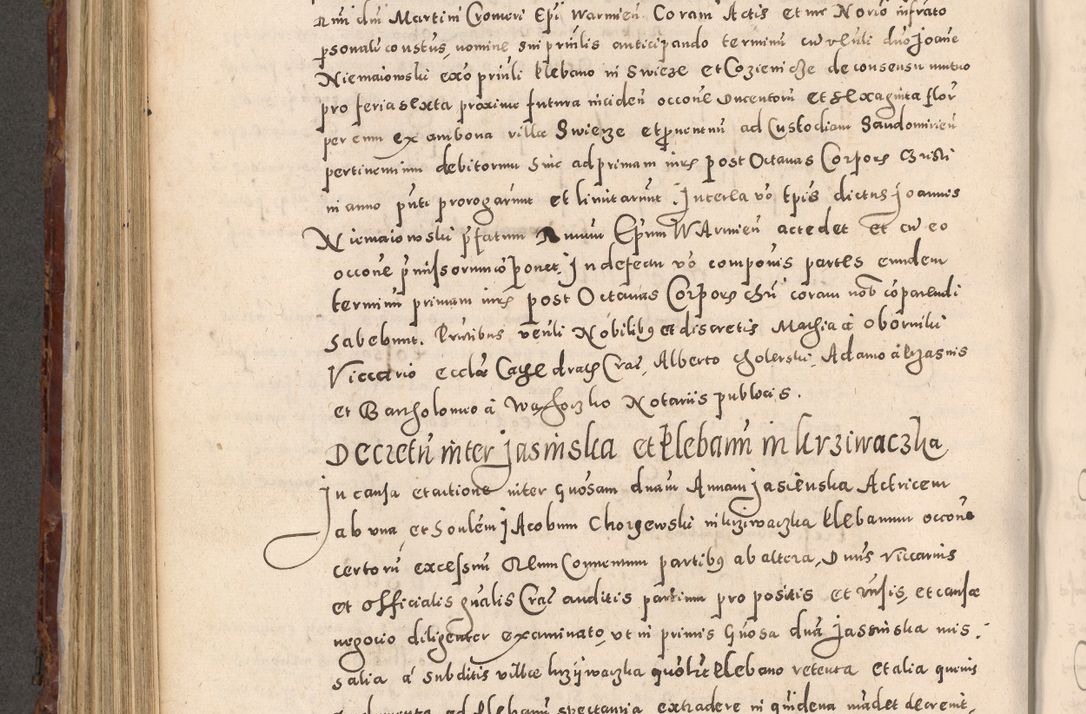 Rmi dni Martini Cromeri Epi Warmien Coram Actis et me Norio infrato
psonali constus, nomine sui priulis anticipando terminu cu veñli duo Joañe
Niemaiowski, exõ priuli plebano in Swieze et Cozieniche de consensu mutuo
pro feria sexta proxime futura inciden occone Ducentoru et sexaginta flor
per eum ex ambona villæ Swierze et puentuu ad Custodiam Sandomirien
pertinentium debitorum Sive ad primam iuris post Octavas Corpors Christi
in anno pñti prorogarunt et limitarunt. Interea vo tpis dictus Joannis
Niemaiowski pfatum Rmum Epum Warmien accedet Et cu eo
occone pmissorum coponet. In defectu vo componis partes eundem
terminu primam iuris post Octavas Corpors chri coram nob coparendi
habebunt. Pñtibus veñli Nobilibq et discretis Mathia à Oborniki
Viccario ecclæ Cathedrals Crac, Alberto cholerski, Adamo à
et Bartholomeo à Notariis publocis.
Decretu inter Jasinska et klebanu in krziwaczka
In causa et actione inter Gnosam dnam Annam Jasienska Actricem
ab una, et honlem Jacobum Chorgewski in krziwaczka klebanum occone
certoru excessuu Reum Conventum partibq ab altera, Dnus Viccarius
et officialis gnalis Crac auditis partium propositis et visis, et causæ
negocio diligenter examinato, ut in primis Gnosa dna Jassinska mis.
salia à subditis villæ krzywaczka klebano retenta et alia quevis
ad klebanu spectantia extradere in quidena mandet decrevit.